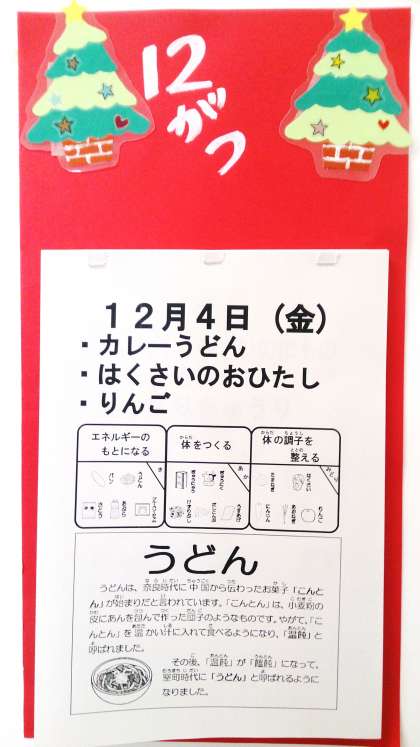 12がつ
12月4日（金）
・カレーうどん
・はくさいのおひたし
・りんご
エネルギーの
もとになる
体をつくる
体の調子を
整える
うどん
うどんは、奈良時代に中国から伝わったお菓子「こんと
ん」が始まりだと言われています。「こんとん」は、小麦粉の
皮にあんを包んで作った団子のようなものです。やがて、「こ
んとん」を温かい汁に入れて食べるようになり、「温飩」と
呼ばれました。
その後、「温飩」が「饂飩」になって、
室町時代に「うどん」と呼ばれるように
なりました。